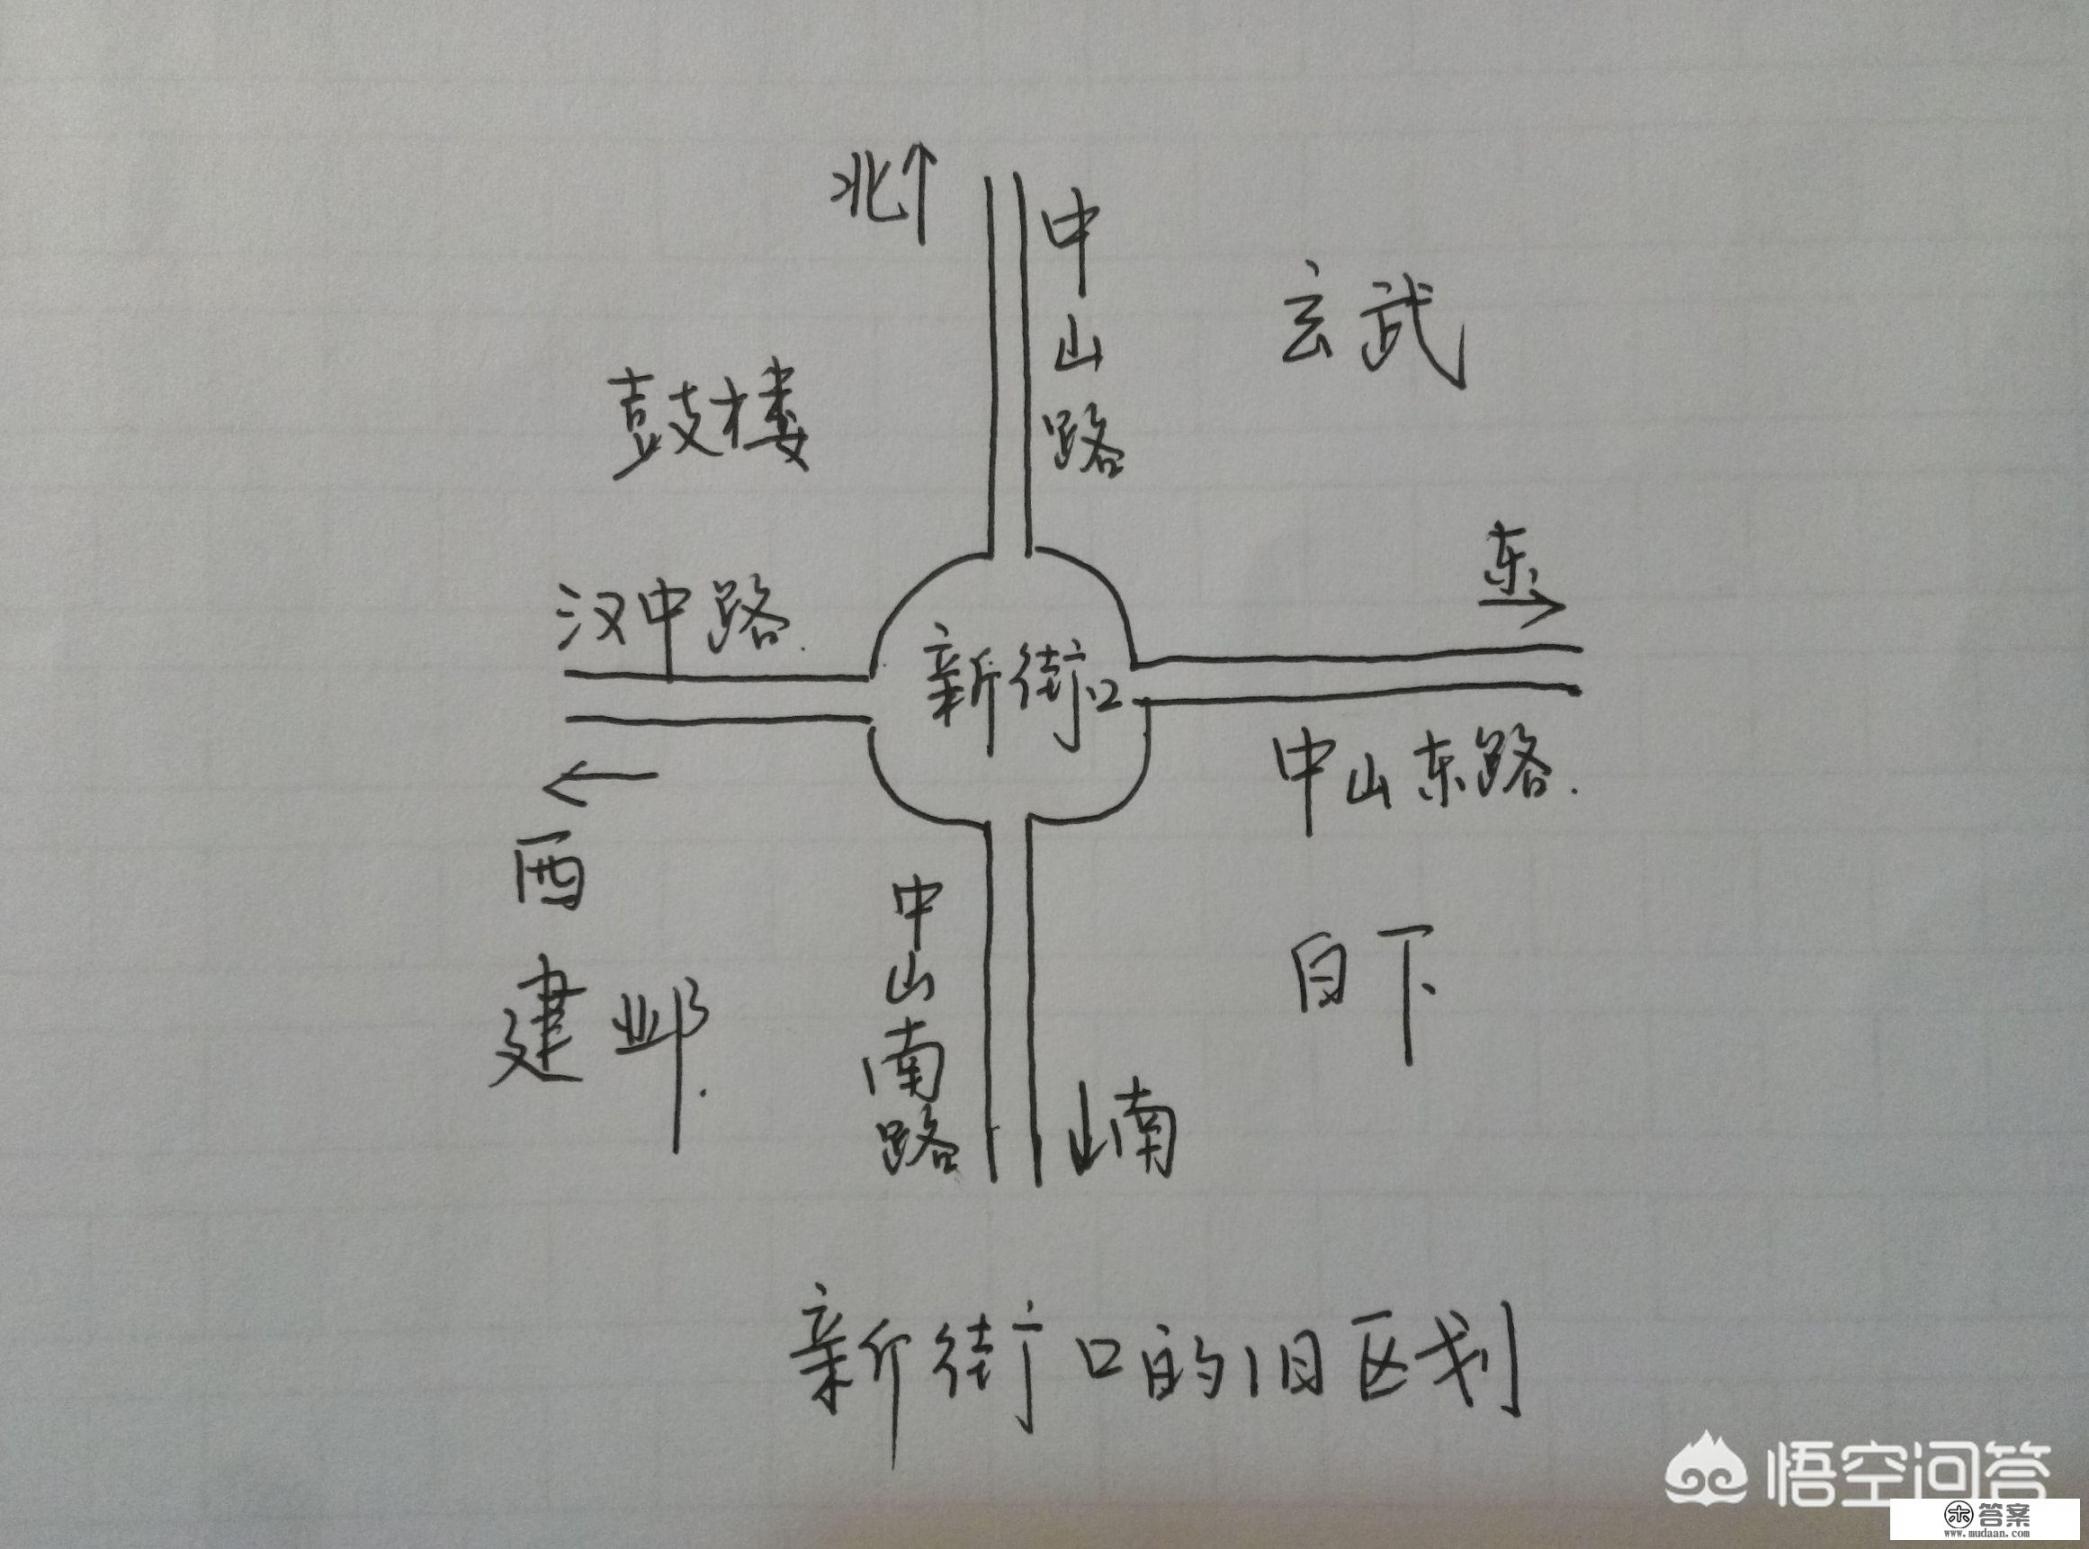 北
中山路
玄武
鼓楼
东
汉中路.
新街口
中山东路.
西
中山南路
白下
建邺.
南
新街口的旧区划
悟空问答
答案
www.mudaan.com